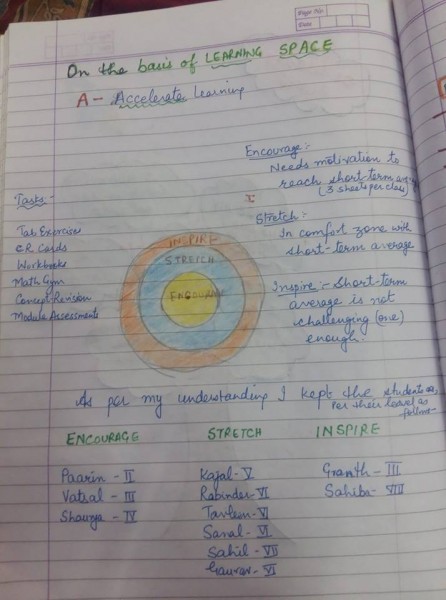 Page No.
Date
On the basis of LEARNING SPACE
A - Accelerate Learning
Encourage:-
Needs motivation to
reach short-term
(3 sheets per class)
Tasks:-
Stretch:-
In comfort zone with
short-term average
Tab Exercises
CR Cards
Workbooks
Math Gym
Concept Revision
Module Assessments
INSPIRE
STRETCH
ENCOURAGE
Inspire:- Short-term
average is not
challenging (one)
enough.
As per my understanding I kept the students as
per their level as
follows-
ENCOURAGE STRETCH INSPIRE
Paarin - II Kajal - V Granth - III
Vatsal - III Rabinder - VI Sahiba - VIII
Shaurya - IV - VI
Saral - VI
Sahil - VII
Gaurav - VI